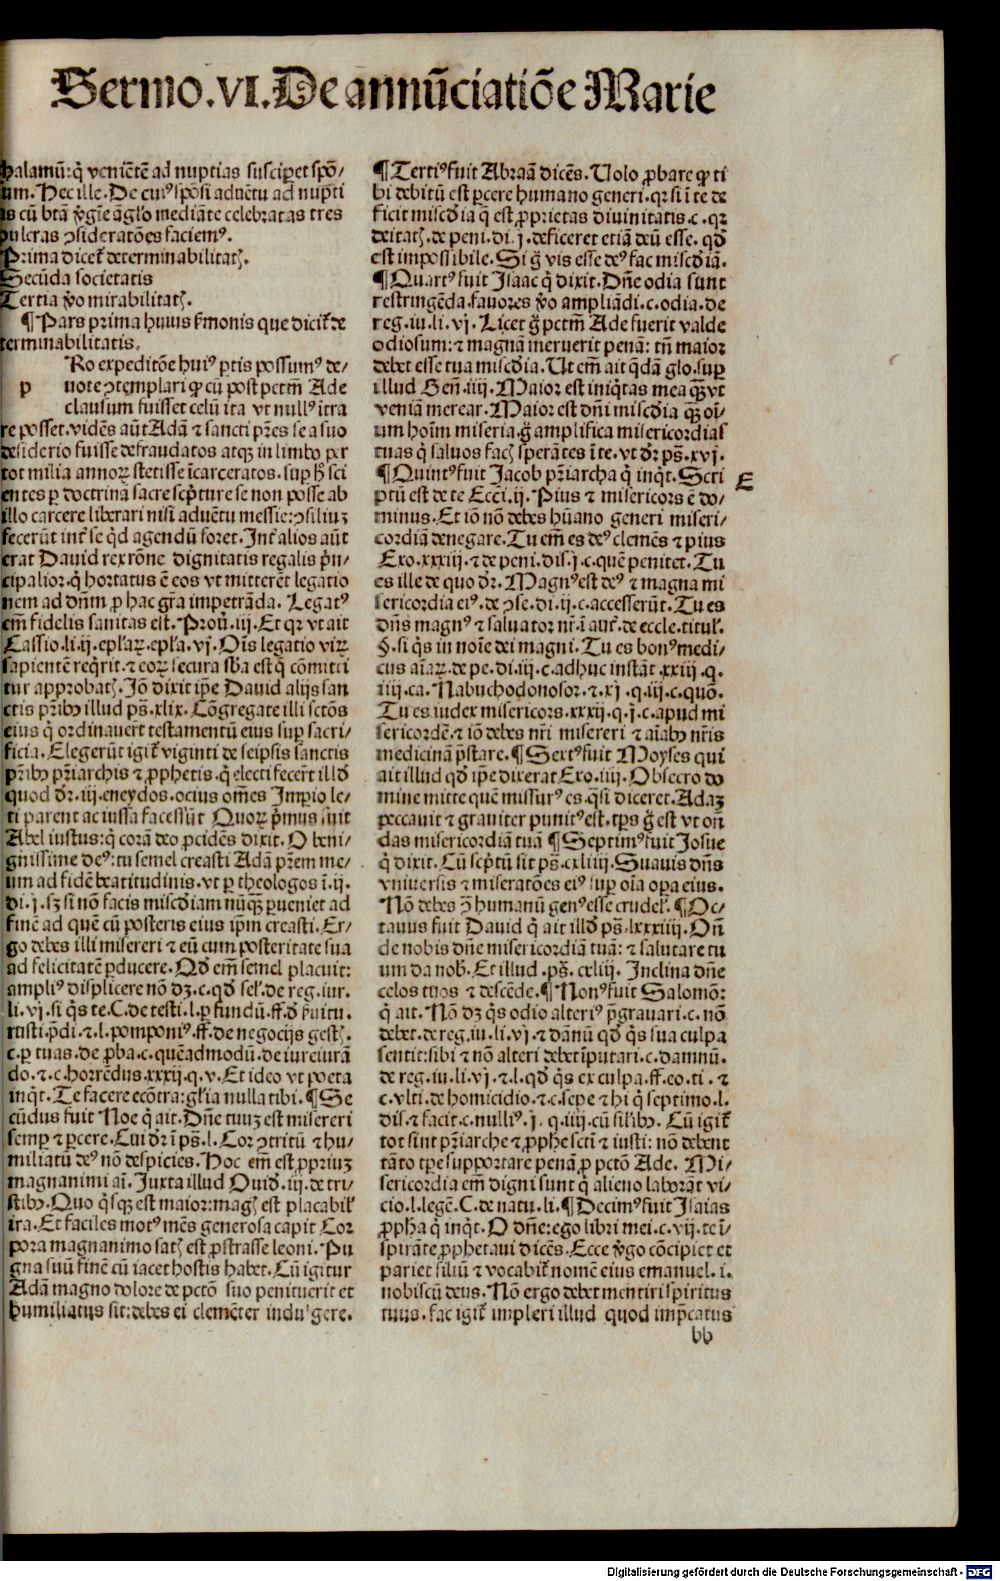 Sermo.VI.De annūciatiōe Marie
halamū:q̄ veniētē ad nuptias susciperet spō/
um.Hec ille.De cuiꝰ spōsi aduētu ad nupti
as cū btā v̄gīe āgl̄o mediāte celebratas tres
pulcras ɔsideratōes faciemꝰ.
Prima dicet̄ determinabilitatꝭ.
Secūda societatis
Tertia v̄o mirabilitatꝭ.
¶ Pars prima huius s̄monis que dicit̄ de
terminabilitatis.
p
Ro expeditōe huiꝰ ꝑtis possumꝰ de/
uote ɔtemplari ꝙ cū post pctm̄ Ade
clausum fuisset celū ita vt nullꝰ ītra
re posset.vidēs aūt Adā ⁊ sancti pr̄es se a suo
desiderio fuisse defraudatos atqꝫ in limbo ꝑ
tot milia annoꝝ stetisse īcarceratos.suꝑ hͦ sci
entes ꝑ doctrinā sacre scp̄ture se non posse ab
illo carcere liberari nisi aduētu messie:ɔsiliuꝫ
fecerūt int̄ se qd̄ agendū foret.Int̄ alios aūt
erat Dauid rex rōne dignitatis regalis p̄n/
cipalior.q̄ hortatus ē eos vt mitterēt legatio
nem ad dn̄m ꝓ hac gr̄a impetrāda. Legatꝰ
em̄ fidelis sanitas est.Prou̅.iij.Et qꝛ vt ait
Cassio.li.ij.epl̄aꝝ.epl̄a.vj.Oīs legatio viꝝ
sapientē reqͥrit.⁊ eoꝝ secura sb̄a est q̄ cōmitti
tur approbatꝭ.Iō dixit ip̄e Dauid alijs san
ctis pr̄ibꝰ illud ps̄.xlix.Cōgregate illi sctōs
eius q̄ ordinauert̄ testamentū eius suꝑ sacri/
ficia.Elegerūt igit̄ viginti de seipsis sanctis
pr̄ibꝰ pr̄iarchis ⁊ ꝓphetis.q̄ electi fecert̄ illd̄
quod dr̄.iij.eneydos.ocius om̄es Imp̄io le/
ti parent ac iussa facessūt Quoꝝ p̄mus fuit
Abel iustus:q̄ corā deo ꝓcidēs dixit.O beni/
gnissime deꝰ:tu semel creasti Adā pr̄em me/
um ad fidē beatitudinis.vt ꝑ theologos ī.ij.
di.j.sꝫ si nō facis miscd̄iam nūqꝫ̄ ꝑueniet ad
finē ad quē cū posteris eius ip̄m creasti.Er/
go debes illi misereri ⁊ eū cum posteritate sua
ad felicitatē ꝑducere.Qd̄ em̄ semel placuit:
ampliꝰ displicere nō dꝫ.c.qd̄ sel̄.de reg.iur.
li.vj.si q̄s te.C.de testi.l.ꝑ fundū.ff.d̄ s̄uitu.
rusti.p̄di.⁊.l.pomponiꝰ.ff.de negocijs gestꝭ.
c.ꝑ tuas.de ꝓba.c.quēadmodū.de iureiurā
do.⁊.c.horrēdus.xxxij.q.v.Et ideo vt poeta
inqͥt.Te facere ecōtra:gl̄ia nulla tibi.¶Se
cūdus fuit Noe q̄ ait.Dn̄e tuuꝫ est misereri
semꝑ ⁊ ꝑcere.Cui dr̄ ī ps̄.l.Cor ɔtritū ⁊ hu/
miliatū deꝰ nō despicies.Hoc em̄ est ꝓpriuꝫ
magnanimi aī.Iuxta illud Ouid̄.iij.de tri/
stibꝰ.Quo q̄sqꝫ est maior:magꝭ est placabil̄
ira.Et faciles motꝰ mēs generosa capit Cor
pora magnanimo satꝭ est ꝓstrasse leoni.Pu
gna suū finē cū iacet hostis habet.Cū igitur
Adā magno dolore de pctō suo penituerit et
humiliatus sit:debes ei clemēter indulgere.
¶Tertiꝰ fuit Abraā dicēs.Uolo ꝓbare ꝙ ti
bi debitū est ꝑcere humano generi.qꝛ si ī te de
ficit miscd̄ia q̄ est ꝓprietas diuinitatis.c.qꝛ
deitatꝭ.de peni.di.j.deficeret etiā deū esse.qd̄
est impossibile.Si ḡ vis esse deꝰ fac miscd̄iā.
¶Quartꝰ fuit Isaac q̄ dixit.Dn̄e odia sunt
restringēda.fauores v̄o ampliādi.c.odia.de
reg.iu.li.vj.Licet ḡ pctm̄ Ade fuerit valde
odiosum:⁊ magnā meruerit penā:tn̄ maior
debet esse tua miscd̄ia.Ut em̄ ait q̄dā glo.suꝑ
illud Gen̄.iiij.Maior est iniqͥtas mea qꝫ̄ vt
veniā merear.Maior est dn̄i miscd̄ia qꝫ̄ oī/
um hoīm miseria.ḡ amplifica misericordias
tuas q̄ saluos facꝭ sperātes ī te.vt dr̄ ps̄.xvj.
¶Quintꝰ fuit Jacob pr̄iarcha q̄ inqͥt.Scri
E
ptū est de te Ecci.ij.Pius ⁊ misericors ē do/
minus.Et iō nō debes hūano generi miseri/
cordiā denegare.Tu em̄ es deꝰ clemēs ⁊ pius
Exo.xxxiij.⁊ de peni.dis.j.c.que penitet.Tu
es ille de quo dr̄.Magnꝰ est deꝰ ⁊ magna mi
sericordia eiꝰ.de ɔse.di.ij.c.accesserūt.Tu es
dn̄s magnꝰ ⁊ saluator nr̄.ī aut̄.de eccle.titul̄.
§.si q̄s in noīe dei magni.Tu es bonꝰ medi/
cus aīaꝝ.de pe.di.iij.c.adhuc instāt.xxiij.q.
iiij.ca.Nabuchodonosor.⁊.xj.q.iij.c.quō.
Tu es iudex misericors.xxxij.q.j.c.apud mi
sericordē.⁊ iō debes nr̄i misereri ⁊ aīabꝰ nr̄is
medicinā p̄stare.¶Sextꝰ fuit Moyses qui
ait illud qd̄ ip̄e dixerat Exo.iiij.Obsecro do
mine mitte quē missurꝰ es.q̄si diceret.Adaꝫ
peccauit ⁊ grauiter punitꝰ est.tp̄s ḡ est vt on̄
das misericordiā tuā ¶Septimꝰ fuit Josue
q̄ dixit.Cū scp̄tū sit ps̄.cxliiij.Suauis dn̄s
vniuersis ⁊ miseratōes eiꝰ suꝑ oīa oꝑa eius.
Nō debes ɔ̄ humanū genꝰ esse crudel̄.¶Oc/
tauus fuit Dauid q̄ ait illd̄ ps̄.lxxxiiij.On̄
de nobis dn̄e misericordiā tuā:⁊ salutare tu
um da nob̄.Et illud.ps̄.cxliij.Inclina dn̄e
celos tuos ⁊ descēde.¶Nonꝰ fuit Salomō:
q̄ ait.Nō dꝫ q̄s odio alteriꝰ p̄grauari.c.nō
debet.de reg.iu.li.vj.⁊ dānū qd̄ q̄s sua culpa
sentit:sibi ⁊ nō alteri debet īputari.c.damnū.
de reg.iu.li.vj.⁊.l.qd̄ q̄s ex culpa.ff.eo.ti.⁊
c.vlti.de homicidio.⁊.c.sepe ⁊ hi q̄ septimo.l.
dis.⁊ facit.c.nulliꝰ.j.q.iiij.cū sil̄ibꝰ. Cū igit̄
tot sint pr̄iarche ⁊ ꝓphe sctn̄ ⁊ iusti:nō debent
tāto tꝑe supportare penā ꝓ pctō Ade. Mi/
sericordia em̄ digni sunt q̄ alieno laborāt vi/
cio.l.legē.C.de natu.li.¶Decimꝰ fuit Isaias
ꝓpha q̄ inqͥt.O dn̄e:ego libri mei.c.vij.te ī/
spirāte ꝓphetaui dicēs.Ecce v̄go cōcipiet et
pariet filiū ⁊ vocabit̄ nomē eius emanuel.i.
nobiscū deus.Nō ergo debet mentiri spiritus
tuus.fac igit̄ impleri illud quod imp̄catus
bb
Digitalisierung gefördert durch die Deutsche Forschungsgemeinschaft - DFG